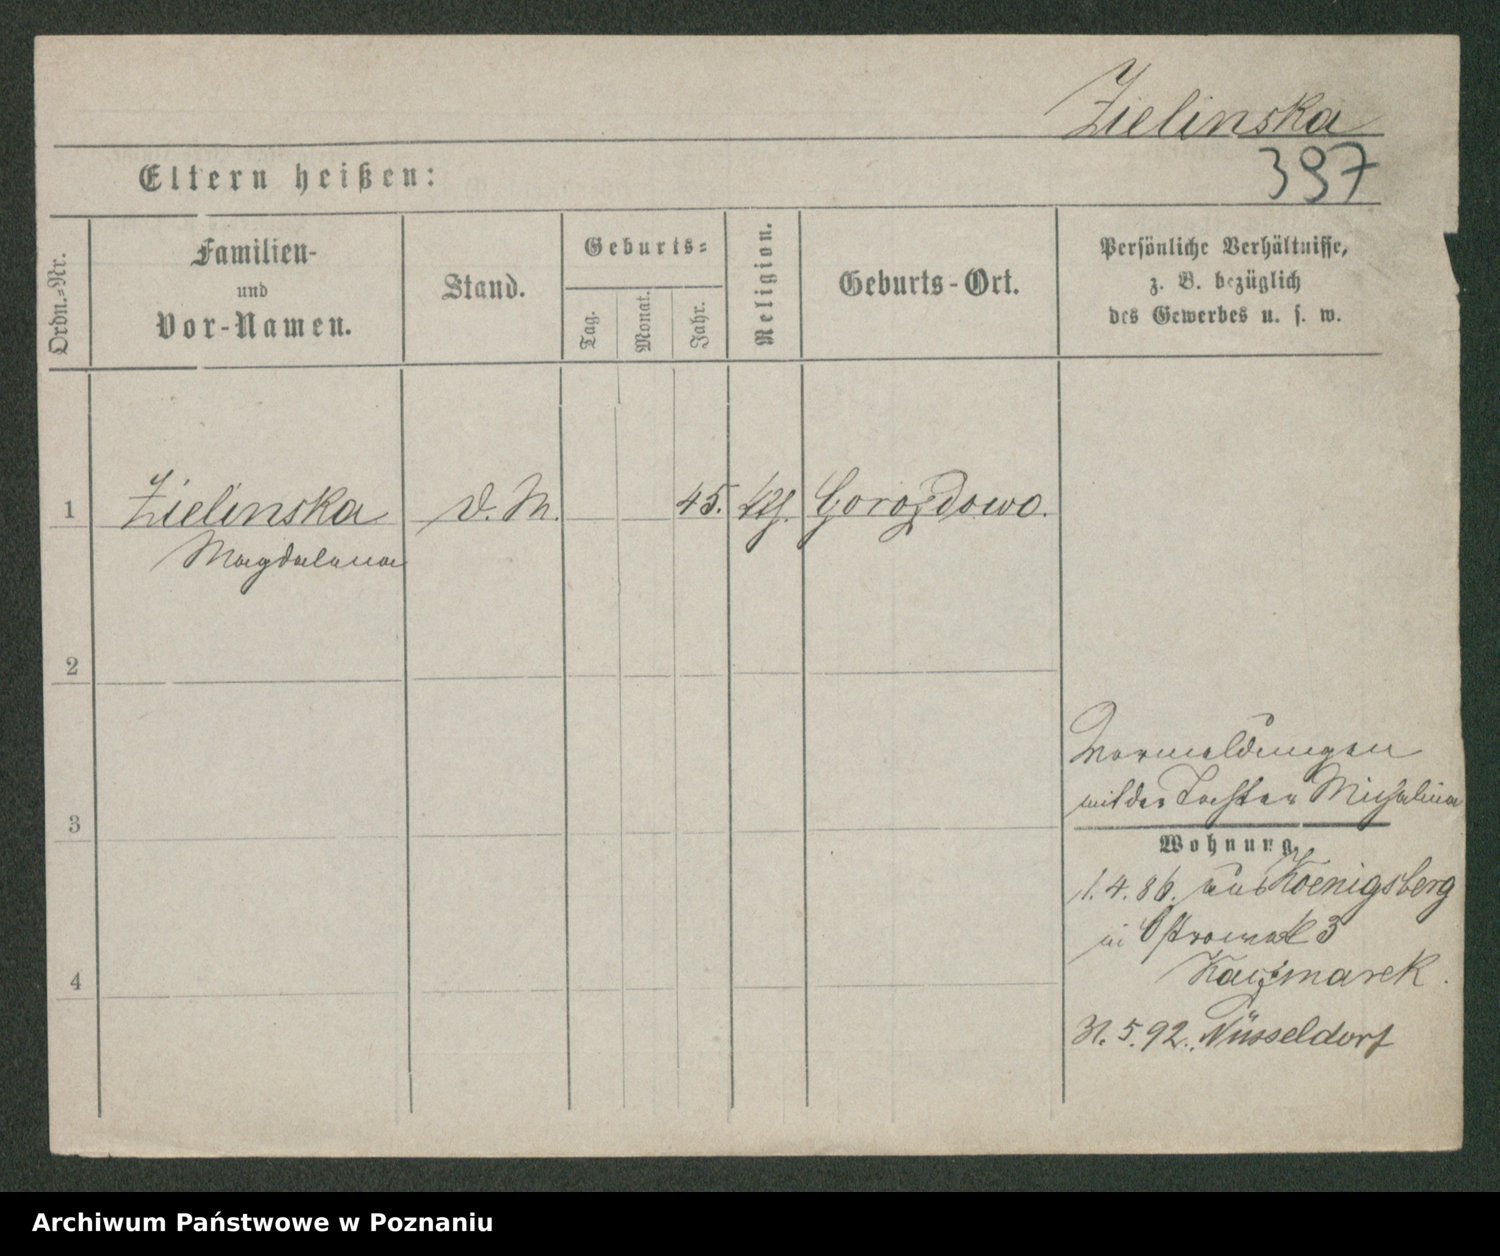 Zielinska
397
Eltern heißen:
Ordn.-Nr.
Familien-
und
Vor-Namen.
Stand.
Geburts-
Tag.
Monat.
Jahr.
Religion.
Geburts-Ort.
Persönliche Verhältnisse,
z. B. bezüglich
des Gewerbes u. s. w.
1 Zielinska D. M. 45. Gorazdowo.
Magdalena
2
3
4
Vormeldungen
mit der Tochter Michalina
Wohnung.
1.4.86. aus Koenigsberg
in Ostrowek 3
Kaczmarek.
31.5.92. Düsseldorf
Archiwum Państwowe w Poznaniu